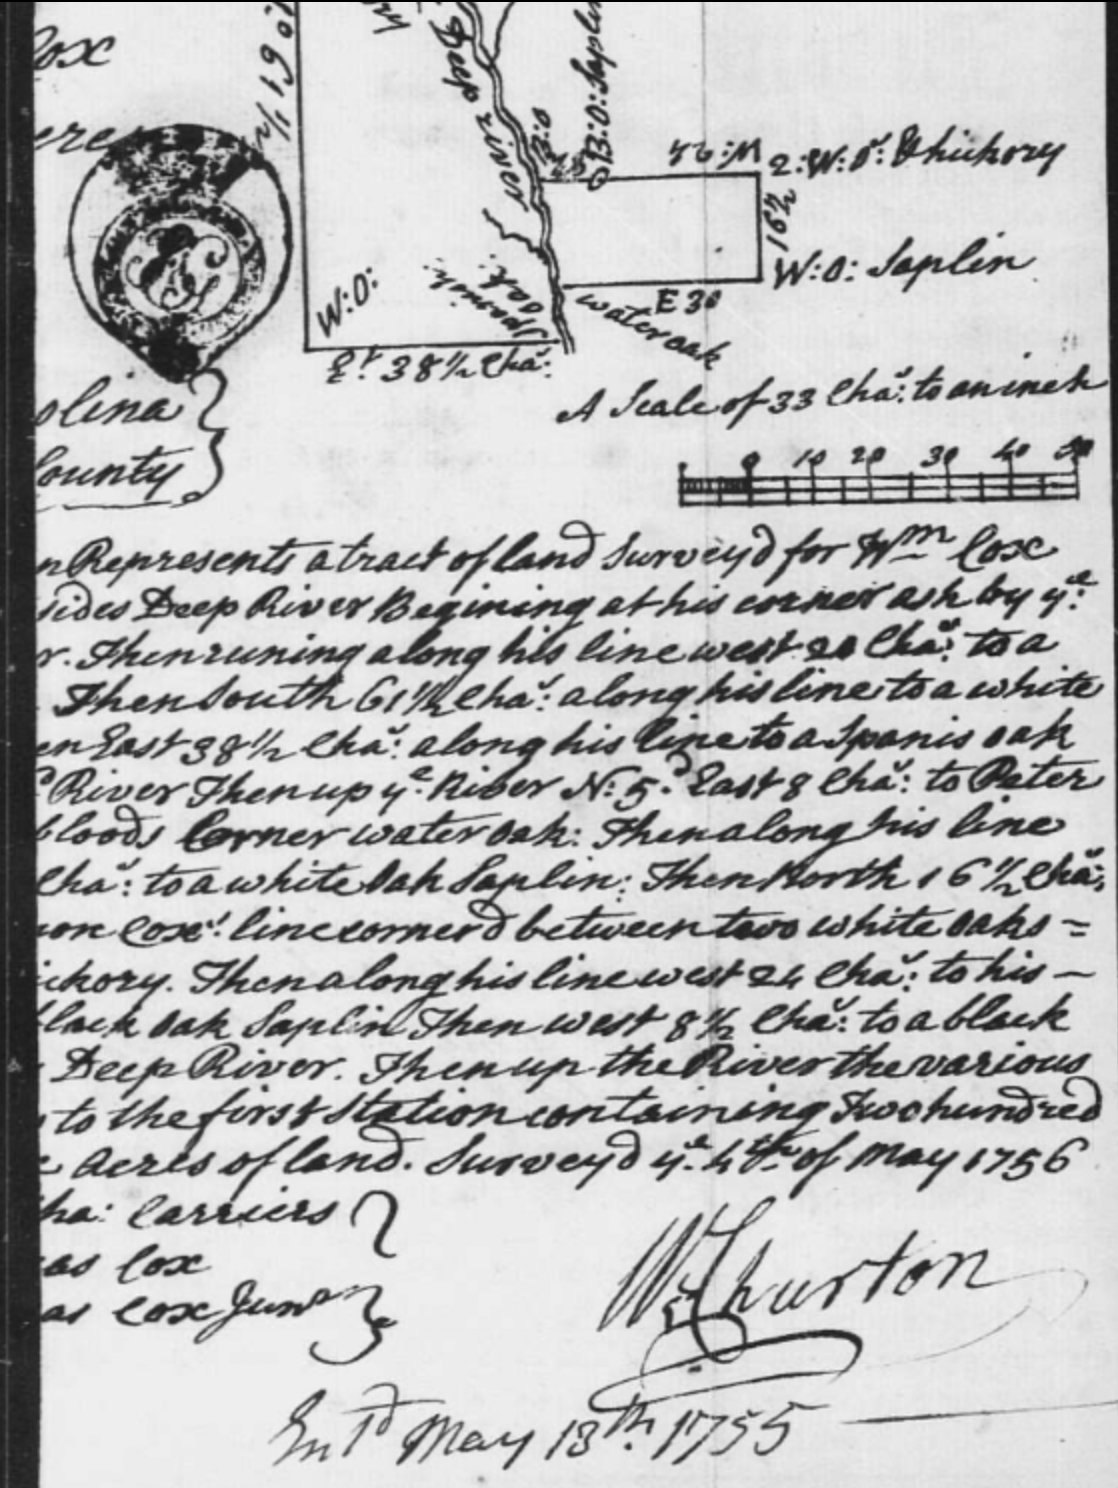 Cox
Deep river
B:O: Saplin
61 1/2
W: 24
2: W: O: & hickory
16 1/2
W: O: Saplin
E 30
W: O:
Spanish oak
water oak
Et. 38 1/2 Cha:
A Scale of 33 Cha: to an inch
0 10 20 30 40 50
olina
County
n Represents a tract of land Survey'd for Wm Cox
sides Deep River Begining at his corner ash by ye:
r. Then runing along his line west 20 Cha: to a
Then South 61 1/2 Cha: along his line to a white
en East 38 1/2 Cha: along his line to a Spanis oak
River Then up ye River N: 5d East 8 Cha: to Peter
bloods Corner water oak: Then along his line
Cha: to a white Oak Saplin: Then North 16 1/2 Cha:
mon Cox's line cornerd between two white oaks =
ickory. Then along his line west 24 Cha: to his –
black oak Saplin Then west 8 1/2 Cha: to a black
Deep River. Then up the River the various
to the first Station containing Two hundred
acres of land. Survey'd ye 4th of May 1756
ha: Carriers
as Cox
as Cox Junr
W Churton
Entd May 13th. 1755